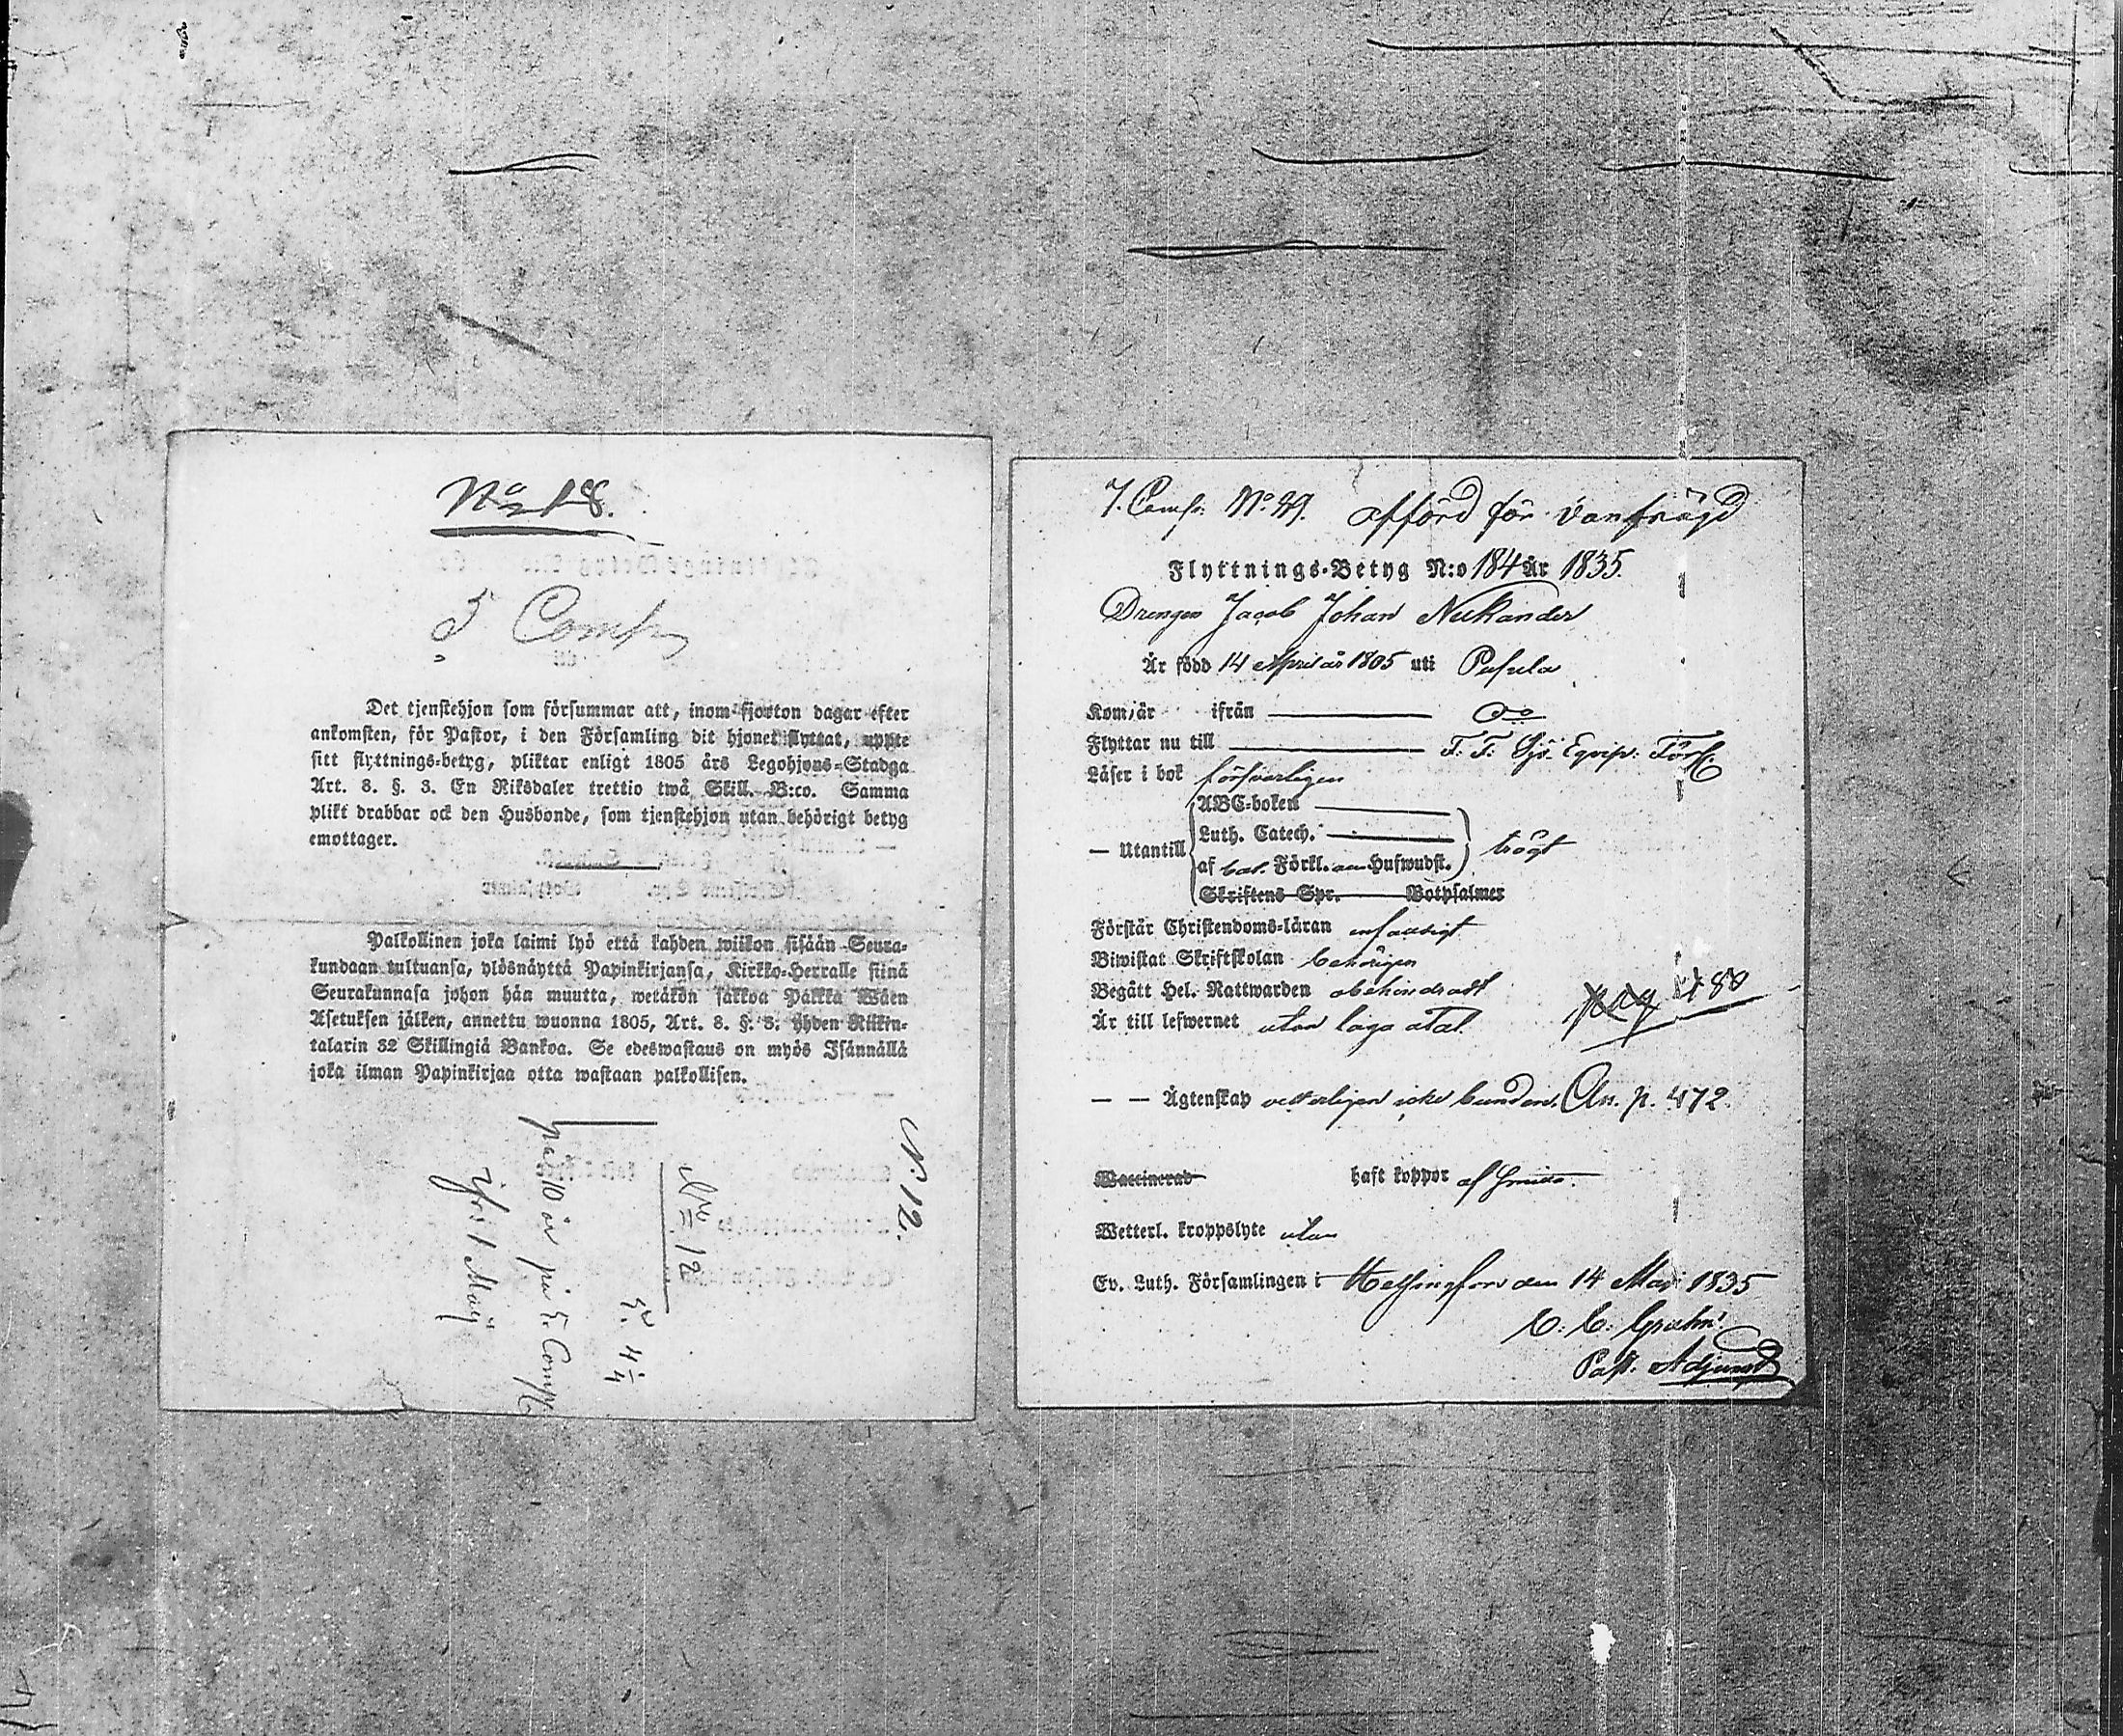 No 18.
5 Comp
Det tjenstehjon som försummar att, inom fjorton dagar efter
ankomsten, för Pastor, i den Församling dit hjonet flyttat, uppte
sitt flyttnings-betyg, pliktar enligt 1805 års Legohjons-Stadga
Art. 8. §. 3. En Riksdaler trettio twå Skill. B:co. Samma
plikt drabbar ock den Husbonde, som tjenstehjon utan behörigt betyg
emottager.
Palkollinen joka laimi lyö että kahden wiikon sisään Seura-
kundaan tultuansa, ylösnäyttä Papinkirjansa, Kirkko-Herralle siinä
Seurakunnasa johon hän muutta, wetäkön sakkoa Palkka Wäen
Asetuksen jälken, annettu wuonna 1805, Art. 8. §. 3. yhden Riikin-
talarin 32 Skillingiä Bankoa. Se edeswastaus on myös Isännällä
joka ilman Papinkirjaa otta wastaan palkollisen.
N. 12.
No 12
5. 4/4
på 10 år på 5. Comp
1 Maij
7. Comp. No. 29. afförd för vanfrägd
Flyttnings-Betyg N:o 184 År 1835.
Drengen Jacob Johan Neckander
Är född 14 April år 1805 uti Pusula
Kom, är ifrån Do
Flyttar nu till F. F. Sjö Eqvip: Förs.
Läser i bok försvarligen
ABC-boken
Luth. Catech.
— Utantill af bar. Förkl. Hufwudst. trögt
Skriftens Spr. Botpsalmer
Förstår Christendoms-läran enfaldigt
Biwistat Skriftskolan behörigen
Begått Hel. Nattwarden obehindradt
pag 480
Är till lefwernet utan laga åtal.
— — Ägtenskap vetterligen icke bunden. An. p. 472.
Waccinerad haft koppor af
Wetterl. kroppslyte utan
Ev. Luth. Församlingen i Helsingfors den 14 Maj 1835
C. C. Grahn.
Past. Adjunct